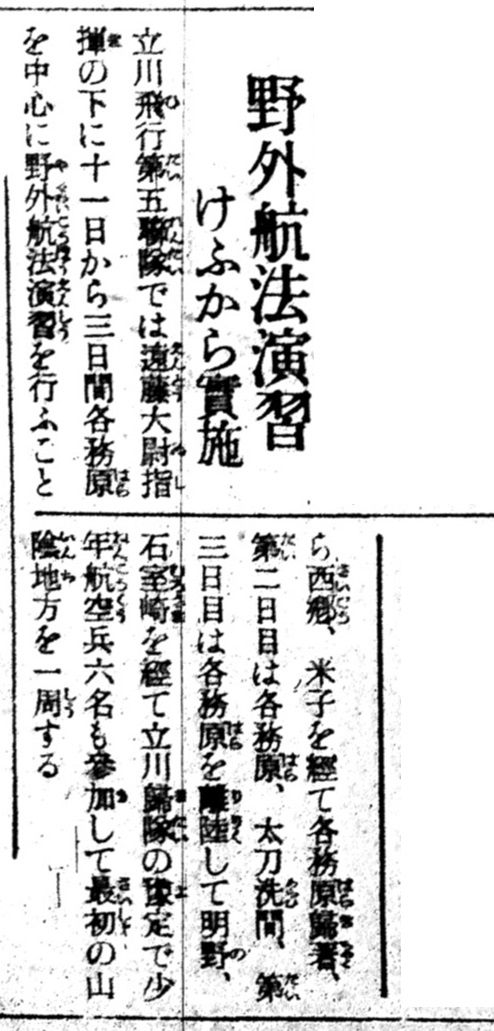 野外航法演習
けふから實施
立川飛行第五聯隊では遠藤大尉指
揮の下に十一日から三日間各務原
を中心に野外航法演習を行ふこと
ら西郷、米子を經て各務原歸著、
第二日目は各務原、太刀洗間、第
三日目は各務原を離陸して明野、
石室崎を經て立川歸隊の豫定で少
年航空兵六名も參加して最初の山
陰地方を一周する